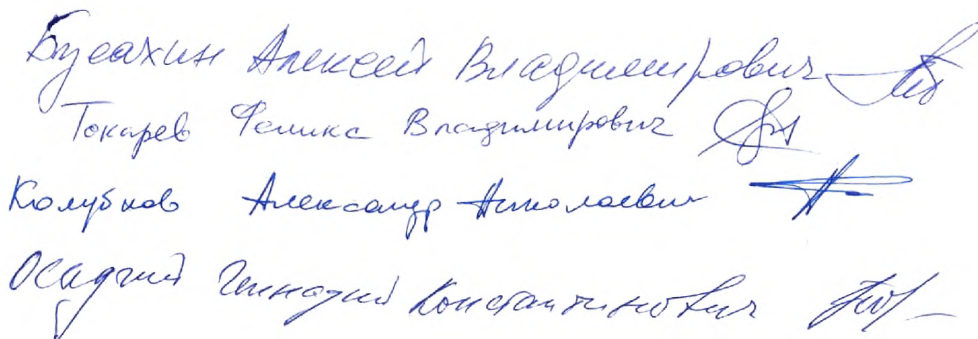 Бусахин Алексей Владимирович
Токарев Феликс Владимирович
Колубков Александр Николаевич
Осадчий Геннадий Константинович